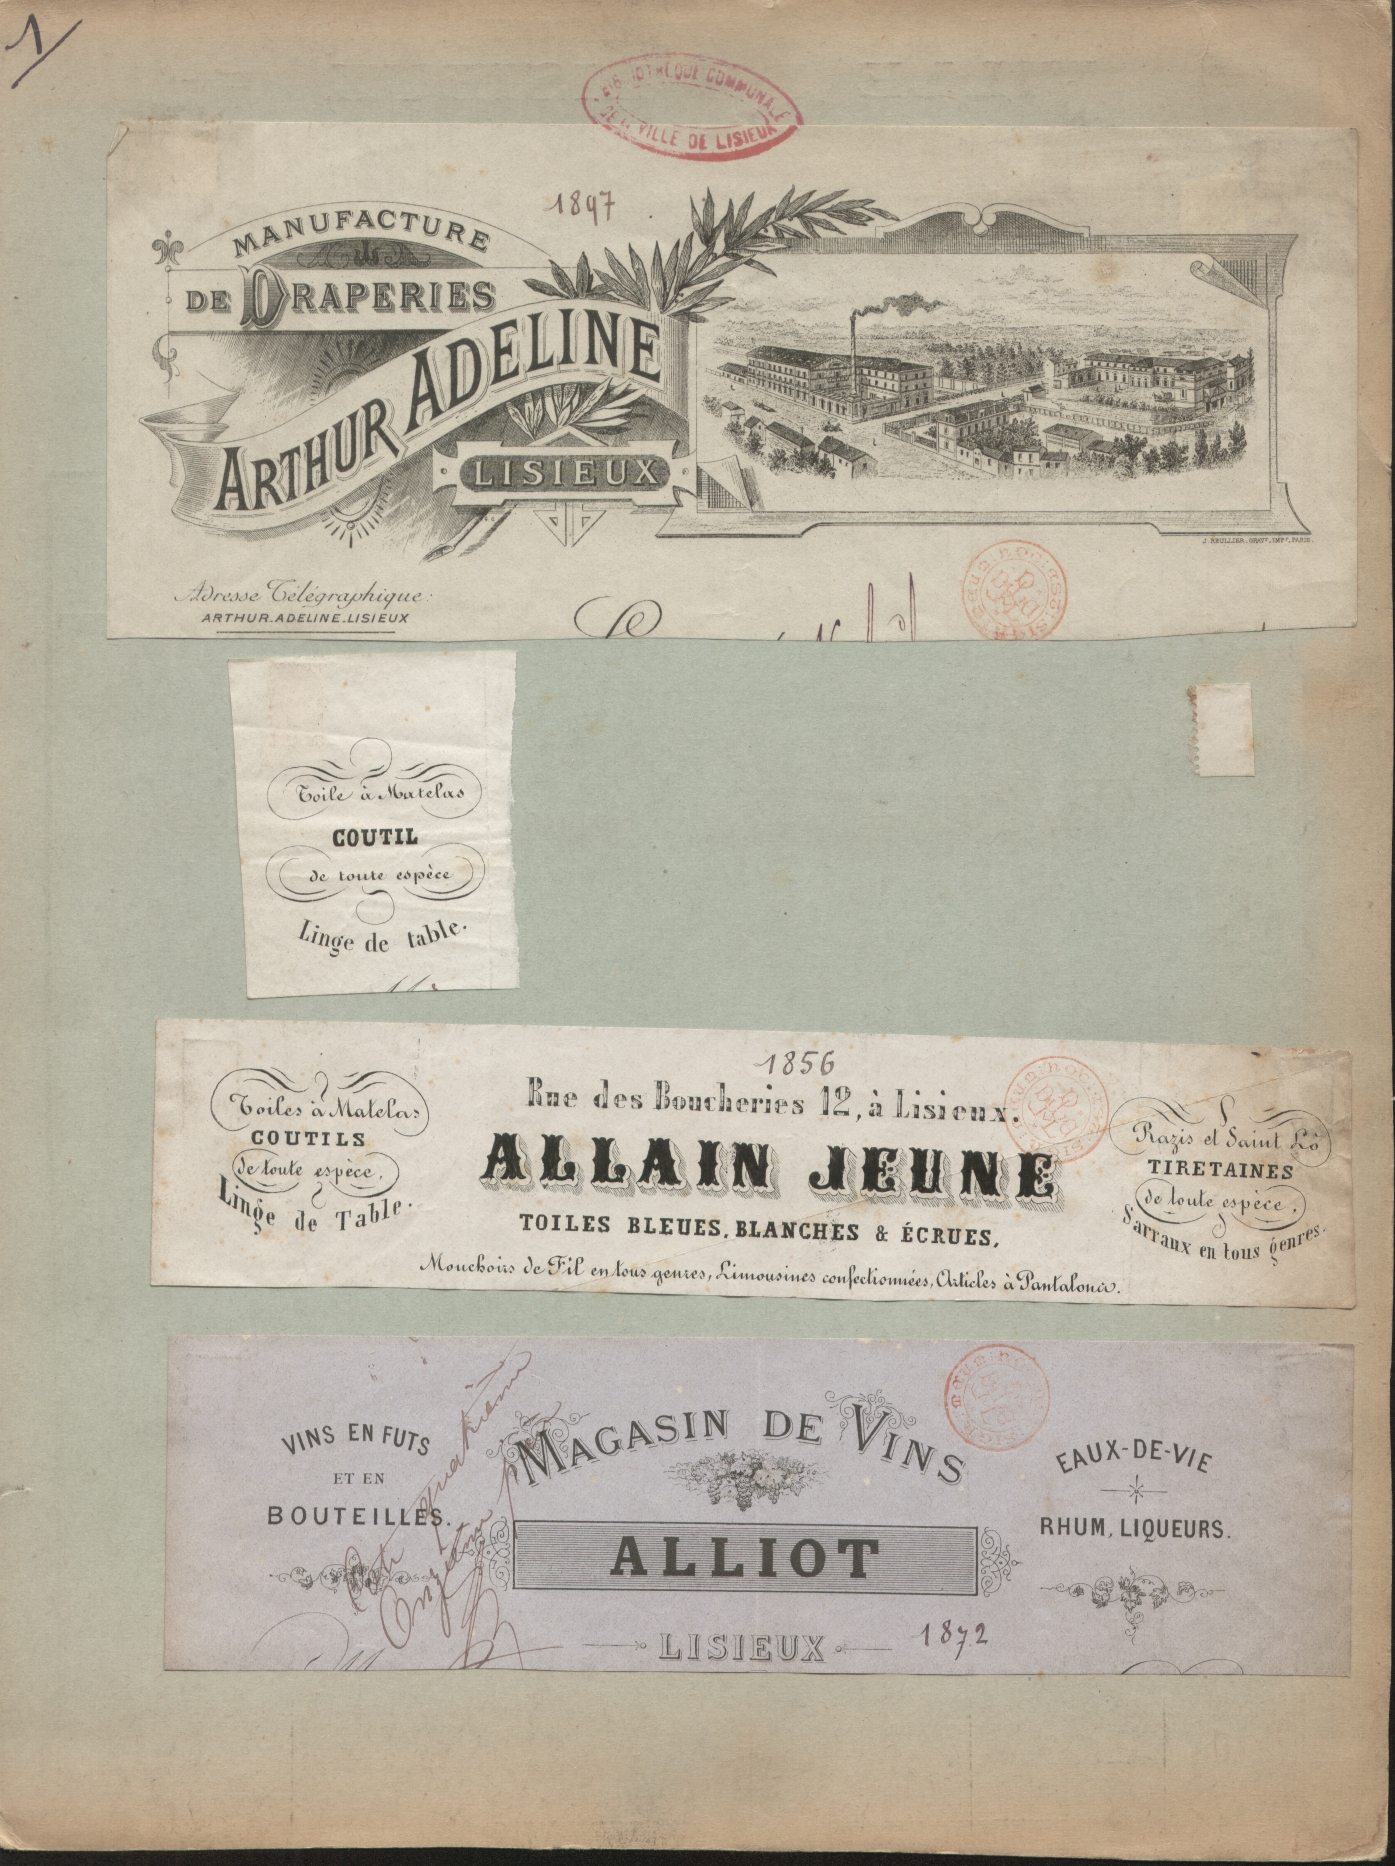 1/
BIBLIOTHEQUE COMMUNALE
DE LA VILLE DE LISIEUX
1897
MANUFACTURE
DE DRAPERIES
ARTHUR ADELINE
LISIEUX
J. BEULLIER. GRAVR. IMPR. PARIS.
Adresse Télégraphique:
ARTHUR_ADELINE_LISIEUX
Toile à Matelas
COUTIL
de toute espèce
Linge de table.
1856
Rue des Boucheries 12, à Lisieux.
ALLAIN JEUNE
TOILES BLEUES, BLANCHES & ÉCRUES,
Mouchoirs de Fil en tous genres, Limousines confectionnées, Articles à Pantalons.
Toiles à Matelas
COUTILS
de toute espèce,
Linge de Table.
Razis et Saint Lô
TIRETAINES
de toute espèce,
Sarraux en tous genres.
VINS EN FUTS
ET EN
BOUTEILLES.
MAGASIN DE VINS
ALLIOT
LISIEUX
1872
EAUX-DE-VIE
RHUM, LIQUEURS.